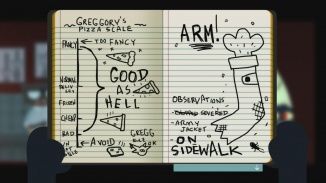 GREGGORY'S
PIZZA SCALE
FANCY
← TOO FANCY
NORMAL
GOOD
AS
HELL
FROZEN
CHEAP
BAD
← AVOID
GREGG
ARM!
OBSERVATIONS
SEVERED
-ARMY
JACKET
-ON
SIDEWALK